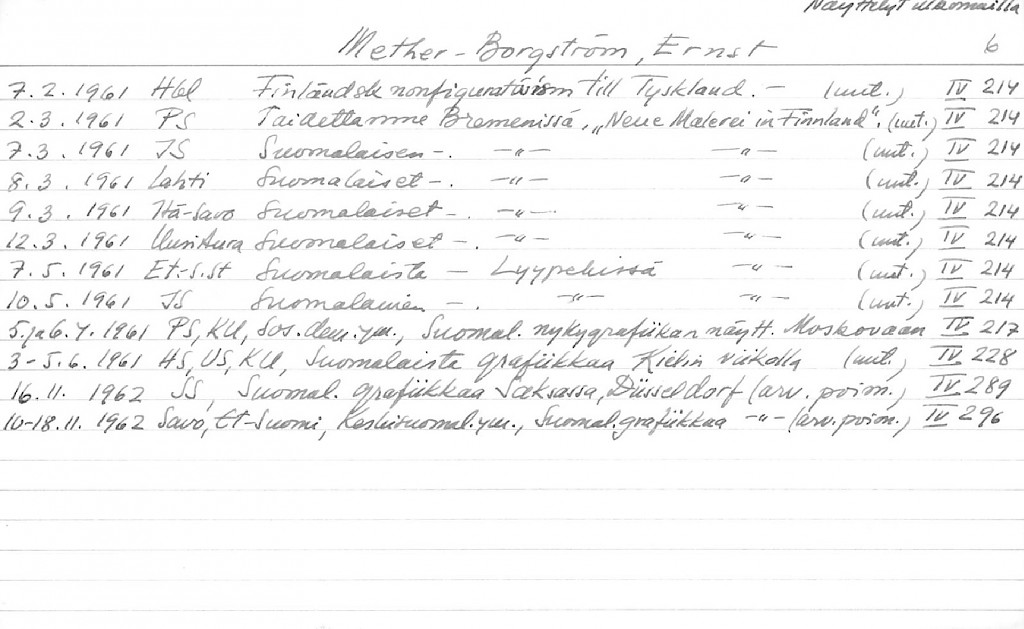 Näyttelyt ulkomailla
Mether-Borgström, Ernst 6
7.2.1961 Hbl Finländsk nonfigurativism till Tyskland. - (uut.) IV 214
2.3.1961 PS Taidettamme Bremenissä, „Neue Malerei in Finnland". (uut.) IV 214
7.3.1961 IS Suomalaisen -. -"- -"- (uut.) IV 214
8.3.1961 Lahti Suomalaiset -. -"- -"- (uut.) IV 214
9.3.1961 Itä-Savo Suomalaiset -. -"-. -"- (uut.) IV 214
12.3.1961 Uusi Aura Suomalaiset -. -"- -"- (uut.) IV 214
7.5.1961 Et-S.St Suomalaista - Lyypekissä -"- (uut.) IV 214
10.5.1961 IS Suomalainen -. -"- -"- (uut.) IV 214
5. ja 6.4.1961 PS, KU, Sos.dem. ym., Suomal. nykygrafiikan näytt. Moskovaan IV 217
3-5.6.1961 HS, US, KU, Suomalaista grafiikkaa Kielin viikolla (uut.) IV 228
16.11.1962 SS, Suomal. grafiikkaa Saksassa, Düsseldorf (arv. poim.) IV 289
10-18.11.1962 Savo, Et-Suomi, Keskisuomal. ym., Suomal. grafiikkaa -"- (arv. poim.) IV 296